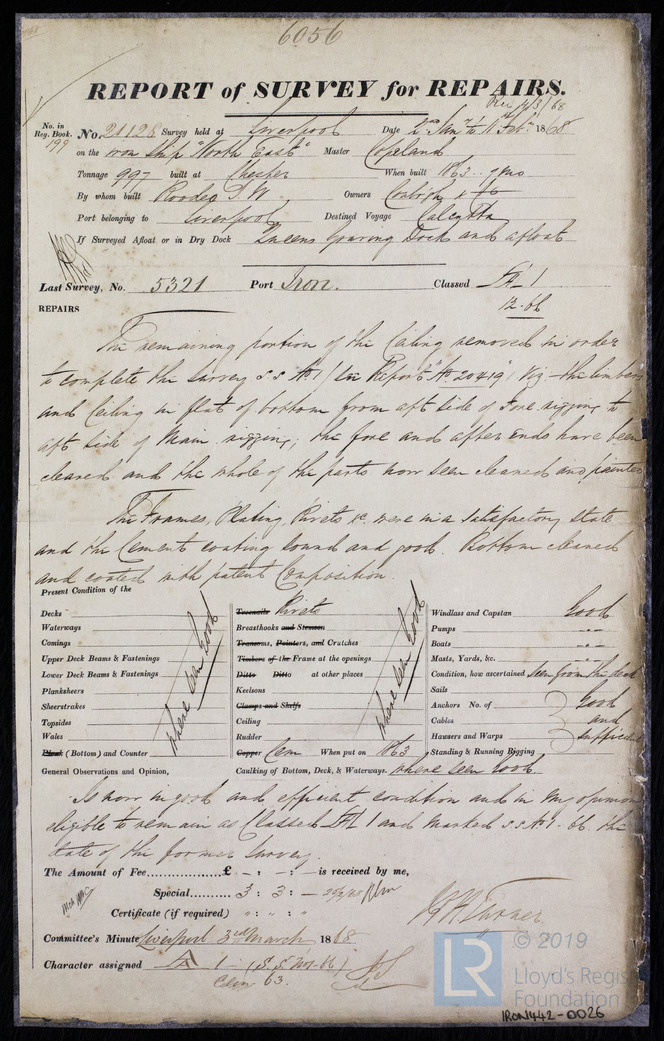 6056
REPORT of SURVEY for REPAIRS.
No. in Reg. Book. 199
No. 21128 Survey held at Liverpool Date 2nd Jany to 11 Feb. 1868
on the iron ship "North East" Master Copeland
Tonnage 997 built at Chester When built 1863
By whom built Roodee I. W. Owners
Port belonging to Liverpool Destined Voyage Calcutta
If Surveyed Afloat or in Dry Dock Queens Graving Dock and afloat
Last Survey, No. 5321 Port Iron. Classed A 1
12.66
REPAIRS
The remaining portion of the Ceiling removed in order
to complete the Survey s.s. No. 1 Report No. 20419 Viz the limbers
and Ceiling in flat of bottom from aft side of Fore rigging to
aft side of Main rigging; the fore and after ends have been
cleared and the whole of the parts now seen cleaned and painted
The Frames, Plating, Rivets &c. were in a satisfactory state
and the Cement coating sound and good. Bottom cleaned
and coated with patent Composition.
Present Condition of the
Decks
Waterways
Comings
Upper Deck Beams & Fastenings
Lower Deck Beams & Fastenings
Planksheers
Sheerstrakes
Topsides
Wales
Plank (Bottom) and Counter
where seen Good
Treenails Rivets
Breasthooks and Stemson
Transoms, Pointers, and Crutches
Timbers of the Frame at the openings
Ditto Ditto at other places
Keelsons
Clamps and Shelfs
Ceiling
Rudder
Copper Cem When put on 1863
where seen Good
Windlass and Capstan Good
Pumps "
Boats "
Masts, Yards, &c. "
Condition, how ascertained seen from the deck
Sails
Anchors No. of
Cables
Hawsers and Warps
Standing & Running Rigging
Good and sufficient
General Observations and Opinion, Caulking of Bottom, Deck, & Waterways. where seen Good.
Is now in good and efficient condition and in my opinion
eligible to remain as Classed A 1 and marked s.s. No. 1. 66 the
date of the former survey.
The Amount of Fee £ - : - : - is received by me,
Special 3 : 3 : -
Certificate (if required) " : " : "
Committee's Minute Liverpool 3rd March 1868
Character assigned A 1 (S.S. No 1-66)
Cem 63.
© 2019
LR
Lloyd's Register
Foundation
IRON442-0026